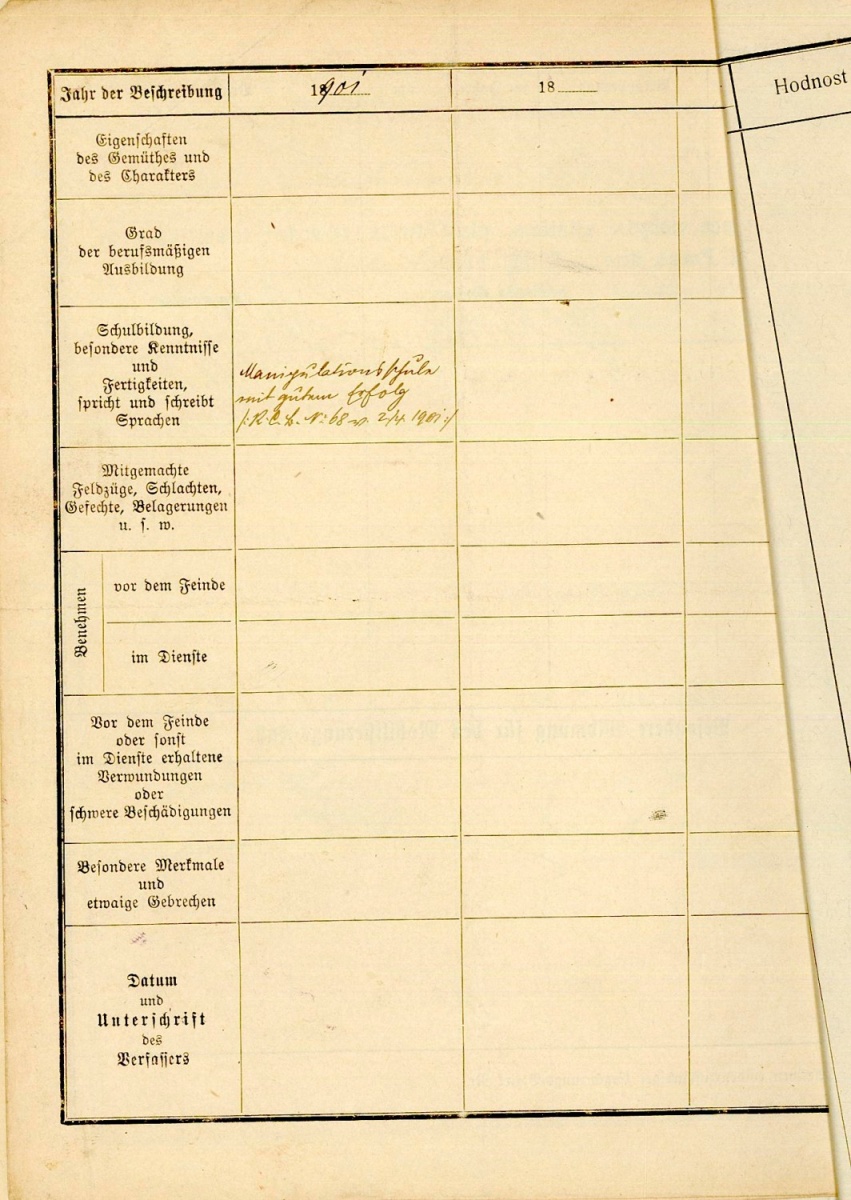 Jahr der Beschreibung
1901
18
Hodnost
Eigenschaften
des Gemüthes und
des Charakters
Grad
der berufsmäßigen
Ausbildung
Schulbildung,
besondere Kenntnisse
und
Fertigkeiten,
spricht und schreibt
Sprachen
Manipulationsschule
mit gutem Erfolg
/:R.C.B. No 68 v. 2/4. 1901:/
Mitgemachte
Feldzüge, Schlachten,
Gefechte, Belagerungen
u. s. w.
Benehmen
vor dem Feinde
im Dienste
Vor dem Feinde
oder sonst
im Dienste erhaltene
Verwundungen
oder
schwere Beschädigungen
Besondere Merkmale
und
etwaige Gebrechen
Datum
und
Unterschrift
des
Verfassers